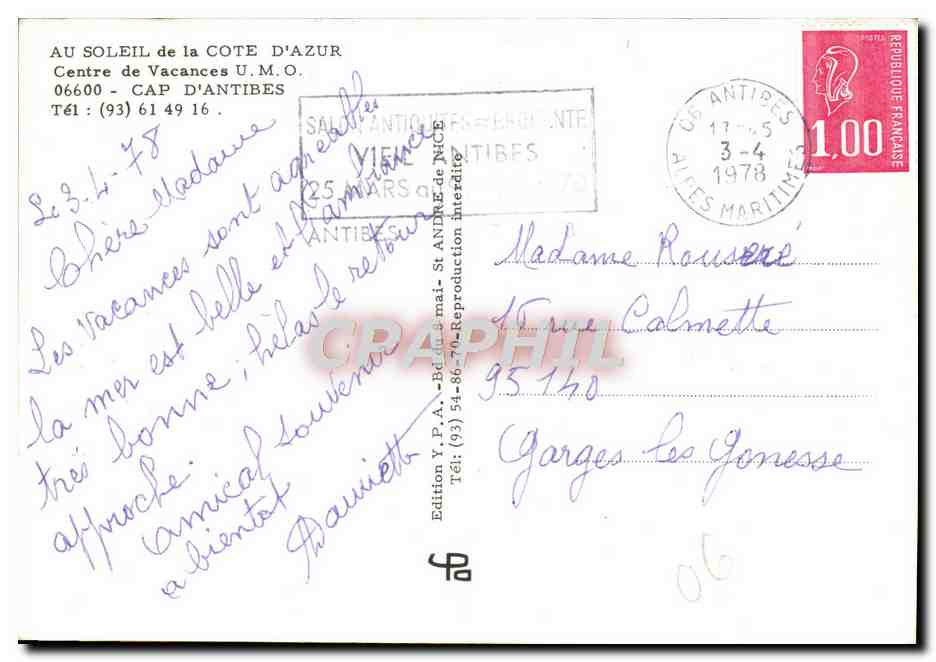 AU SOLEIL de la COTE D'AZUR
Centre de Vacances U.M.O.
06600 - CAP D'ANTIBES
Tél : (93) 61 49 16 .
Le 3.4.78
Chère Madame
Les vacances sont agréables
la mer est belle et l'ambiance
très bonne, hélas le retour
approche.
amical souvenir
a bientot
SALON ANTIQUITES - BROCANTE
VIEIL ANTIBES
25 MARS au
ANTIBES
Edition Y.P.A. -Bd du 8 mai- St ANDRE de NICE
Tél: (93) 54-86-70-Reproduction interdite
06 ANTIBES
3-4
1978
ALPES MARITIMES
POSTES
REPUBLIQUE FRANÇAISE
1,00
Madame
15 rue Calmette
95140
Garges les Gonesse
06
CPAPHIL